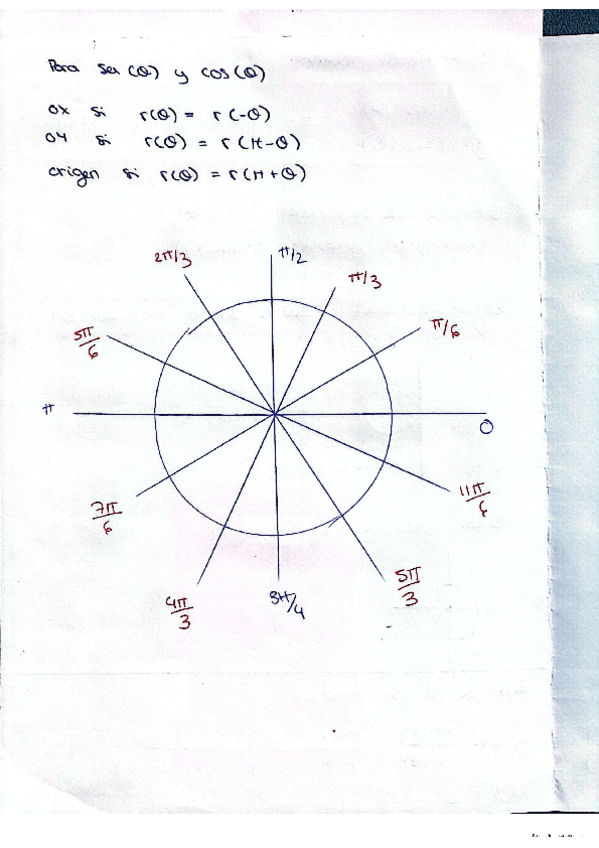 Para sen(θ) y cos(θ)
OX si r(θ) = r(-θ)
OY si r(θ) = r(π-θ)
origen si r(θ) = r(π+θ)
2π/3
π/2
π/3
5π/6
π/6
π
0
7π/6
11π/6
4π/3
3π/4
5π/3